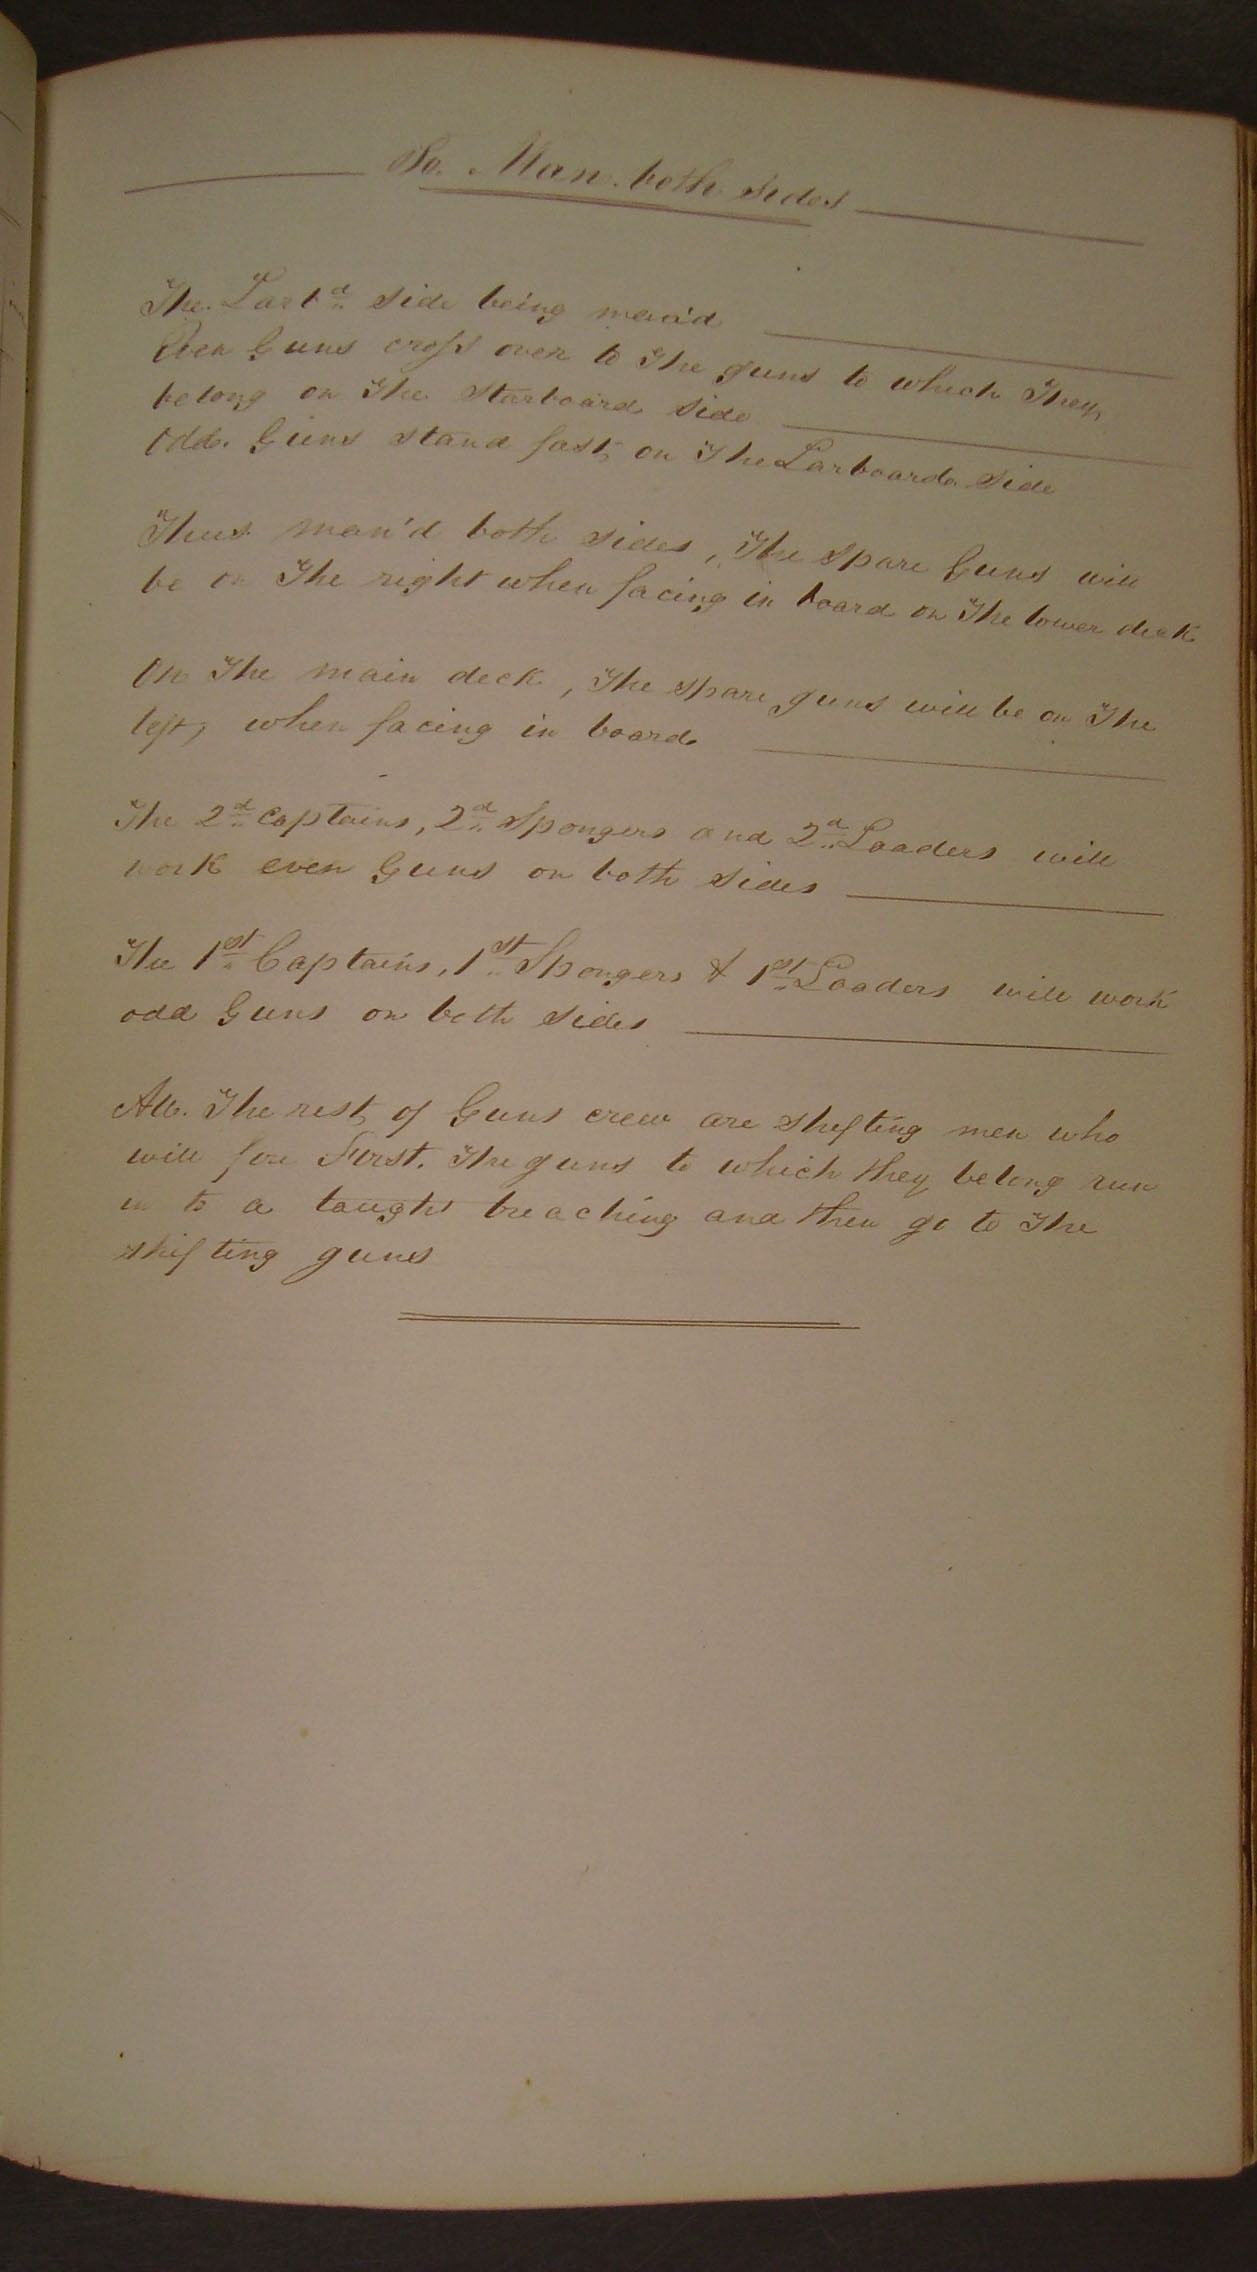 To Man both sides
The Larbd side being man'd
Even Guns cross over to the guns to which they
belong on the Starboard side
Odd Guns stand fast on the Larboard side
Thus man'd both sides, the spare Guns will
be on the right when facing in board on the lower deck
On the main deck, the spare guns will be on the
left, when facing in board
The 2d Captains, 2d Spongers and 2d Loaders will
work even Guns on both sides
The 1st Captains, 1st Spongers & 1st Loaders will work
odd Guns on both sides
All the rest of Guns crew are shifting men who
will first the guns to which they belong run
in to a taught breaching and then go to the
shifting guns